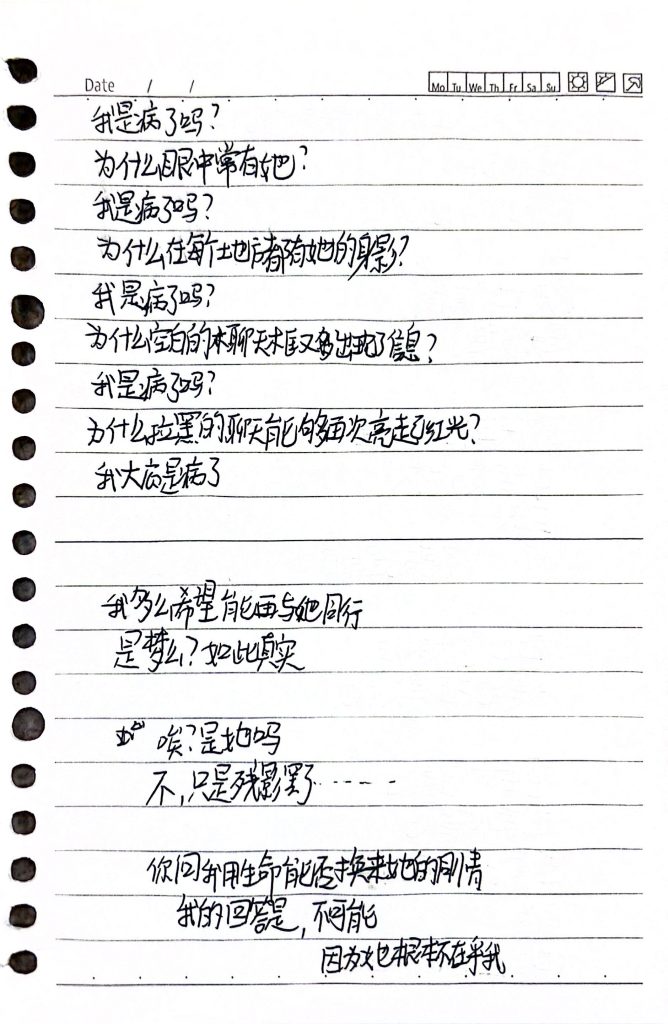 Date / /
Mo Tu We Th Fr Sa Su
我是病了吗?
为什么眼中常有她?
我是病了吗?
为什么在每个地方都有她的身影?
我是病了吗?
为什么空白的聊天框又多出现了信息?
我是病了吗?
为什么拉黑的聊天能够再次亮起了红光?
我大应是病了
我多么希望能再与她同行
是梦么?如此真实
唉?是她吗
不,只是残影罢了……
你问我用生命能否换来她的
我的回答是,不可能
因为她根本不在乎我